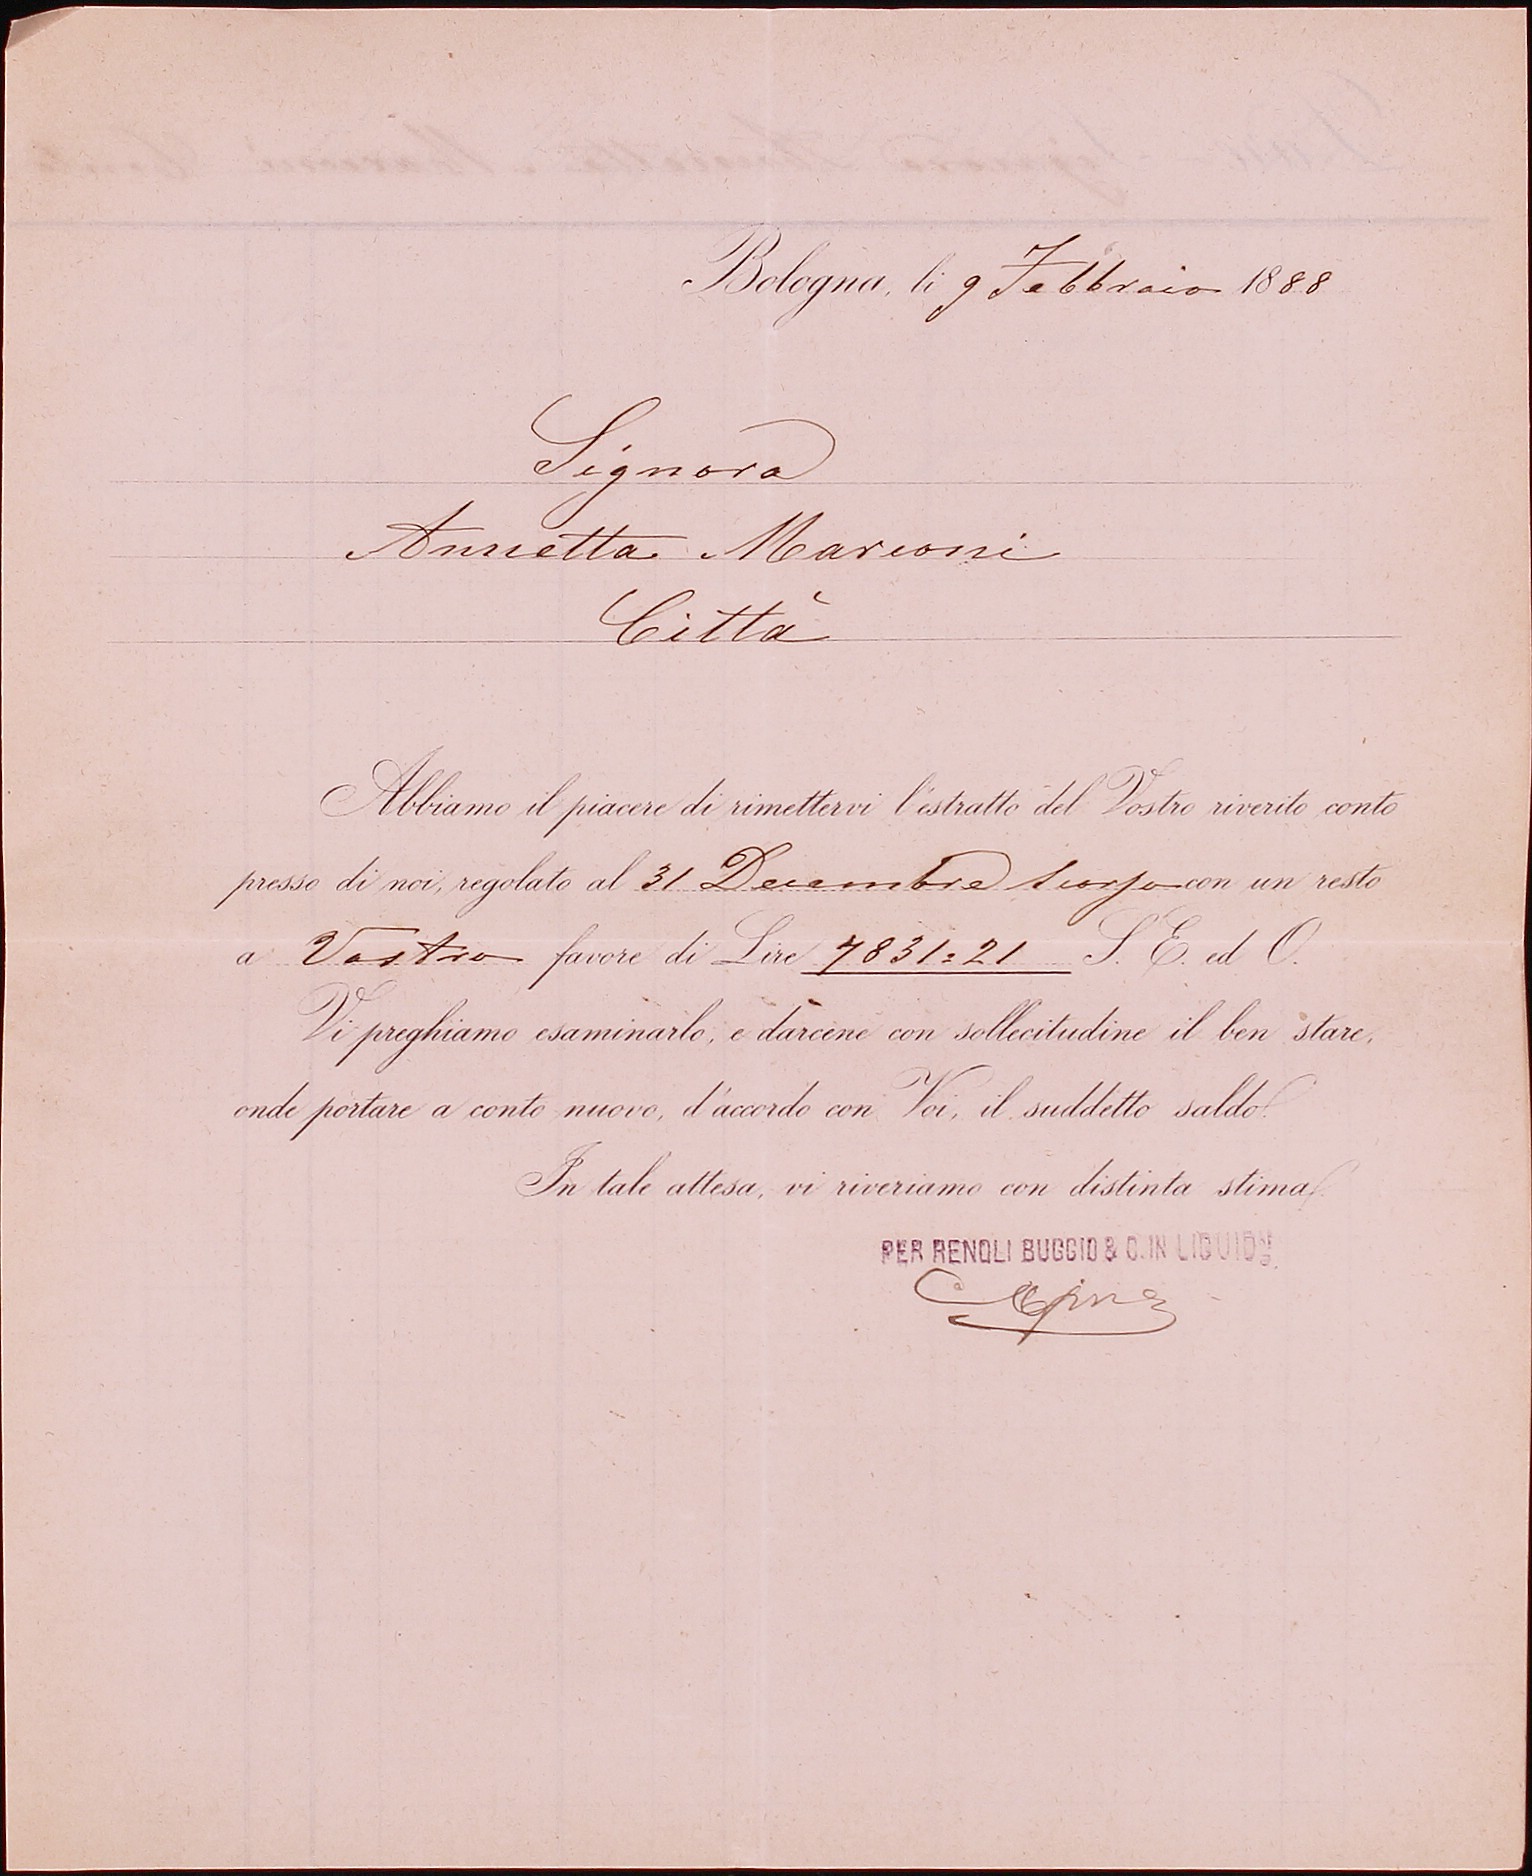 Bologna, li 9 Febbraio 1888
Signora
Annetta Marconi
Città
Abbiamo il piacere di rimettervi l'estratto del Vostro riverito conto
presso di noi, regolato al 31 Decembre scorso con un resto
a Vostro favore di Lire 7831=21 S. E. ed O.
Vi preghiamo esaminarlo, e darcene con sollecitudine il ben stare,
onde portare a conto nuovo, d'accordo con Voi, il suddetto saldo.
In tale attesa, vi riveriamo con distinta stima.
PER RENOLI BUGGIO & C. IN LIQUIDNE